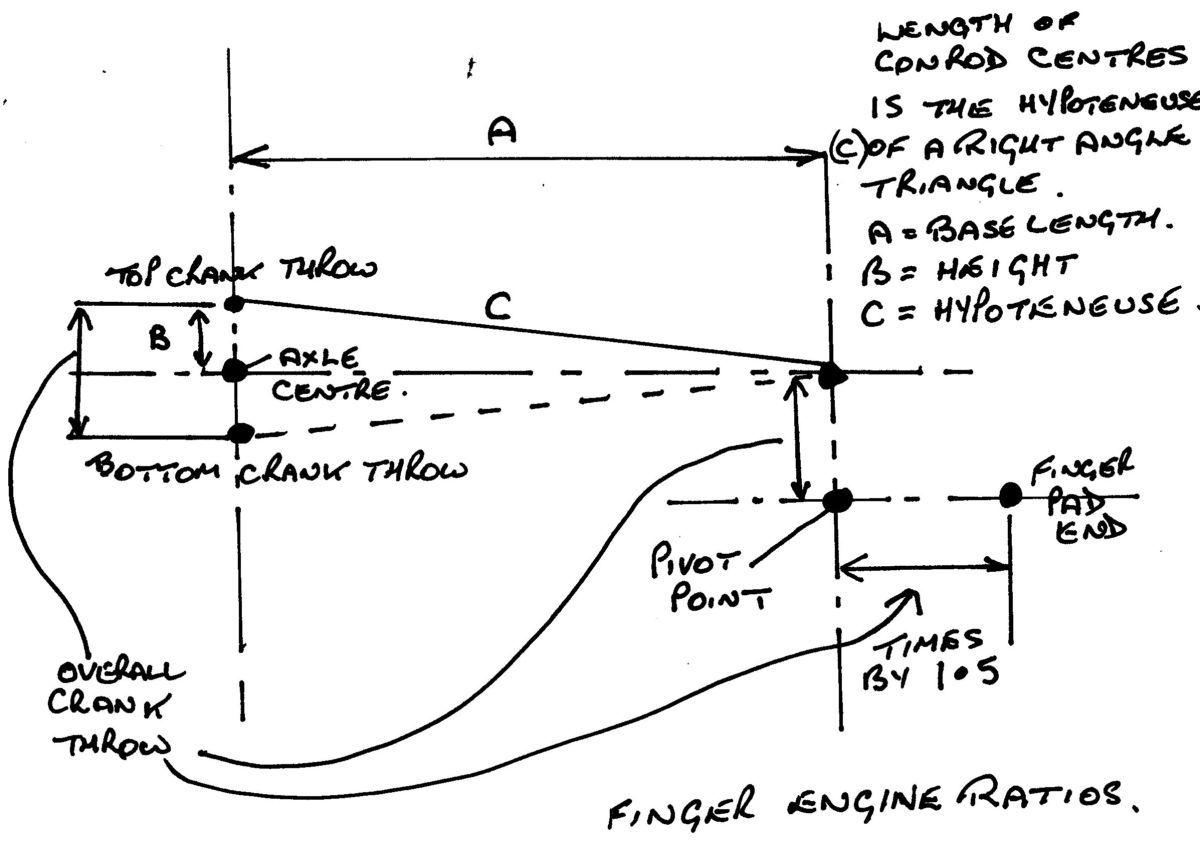 LENGTH OF
CONROD CENTRES
IS THE HYPOTENEUSE
(C) OF A RIGHT ANGLE
TRIANGLE.
A = BASE LENGTH.
B = HEIGHT
C = HYPOTENEUSE.
A
TOP CRANK THROW
C
B
AXLE
CENTRE.
BOTTOM CRANK THROW
FINGER
PAD
END
PIVOT
POINT
TIMES
BY 1.5
OVERALL
CRANK
THROW
FINGER ENGINE RATIOS.